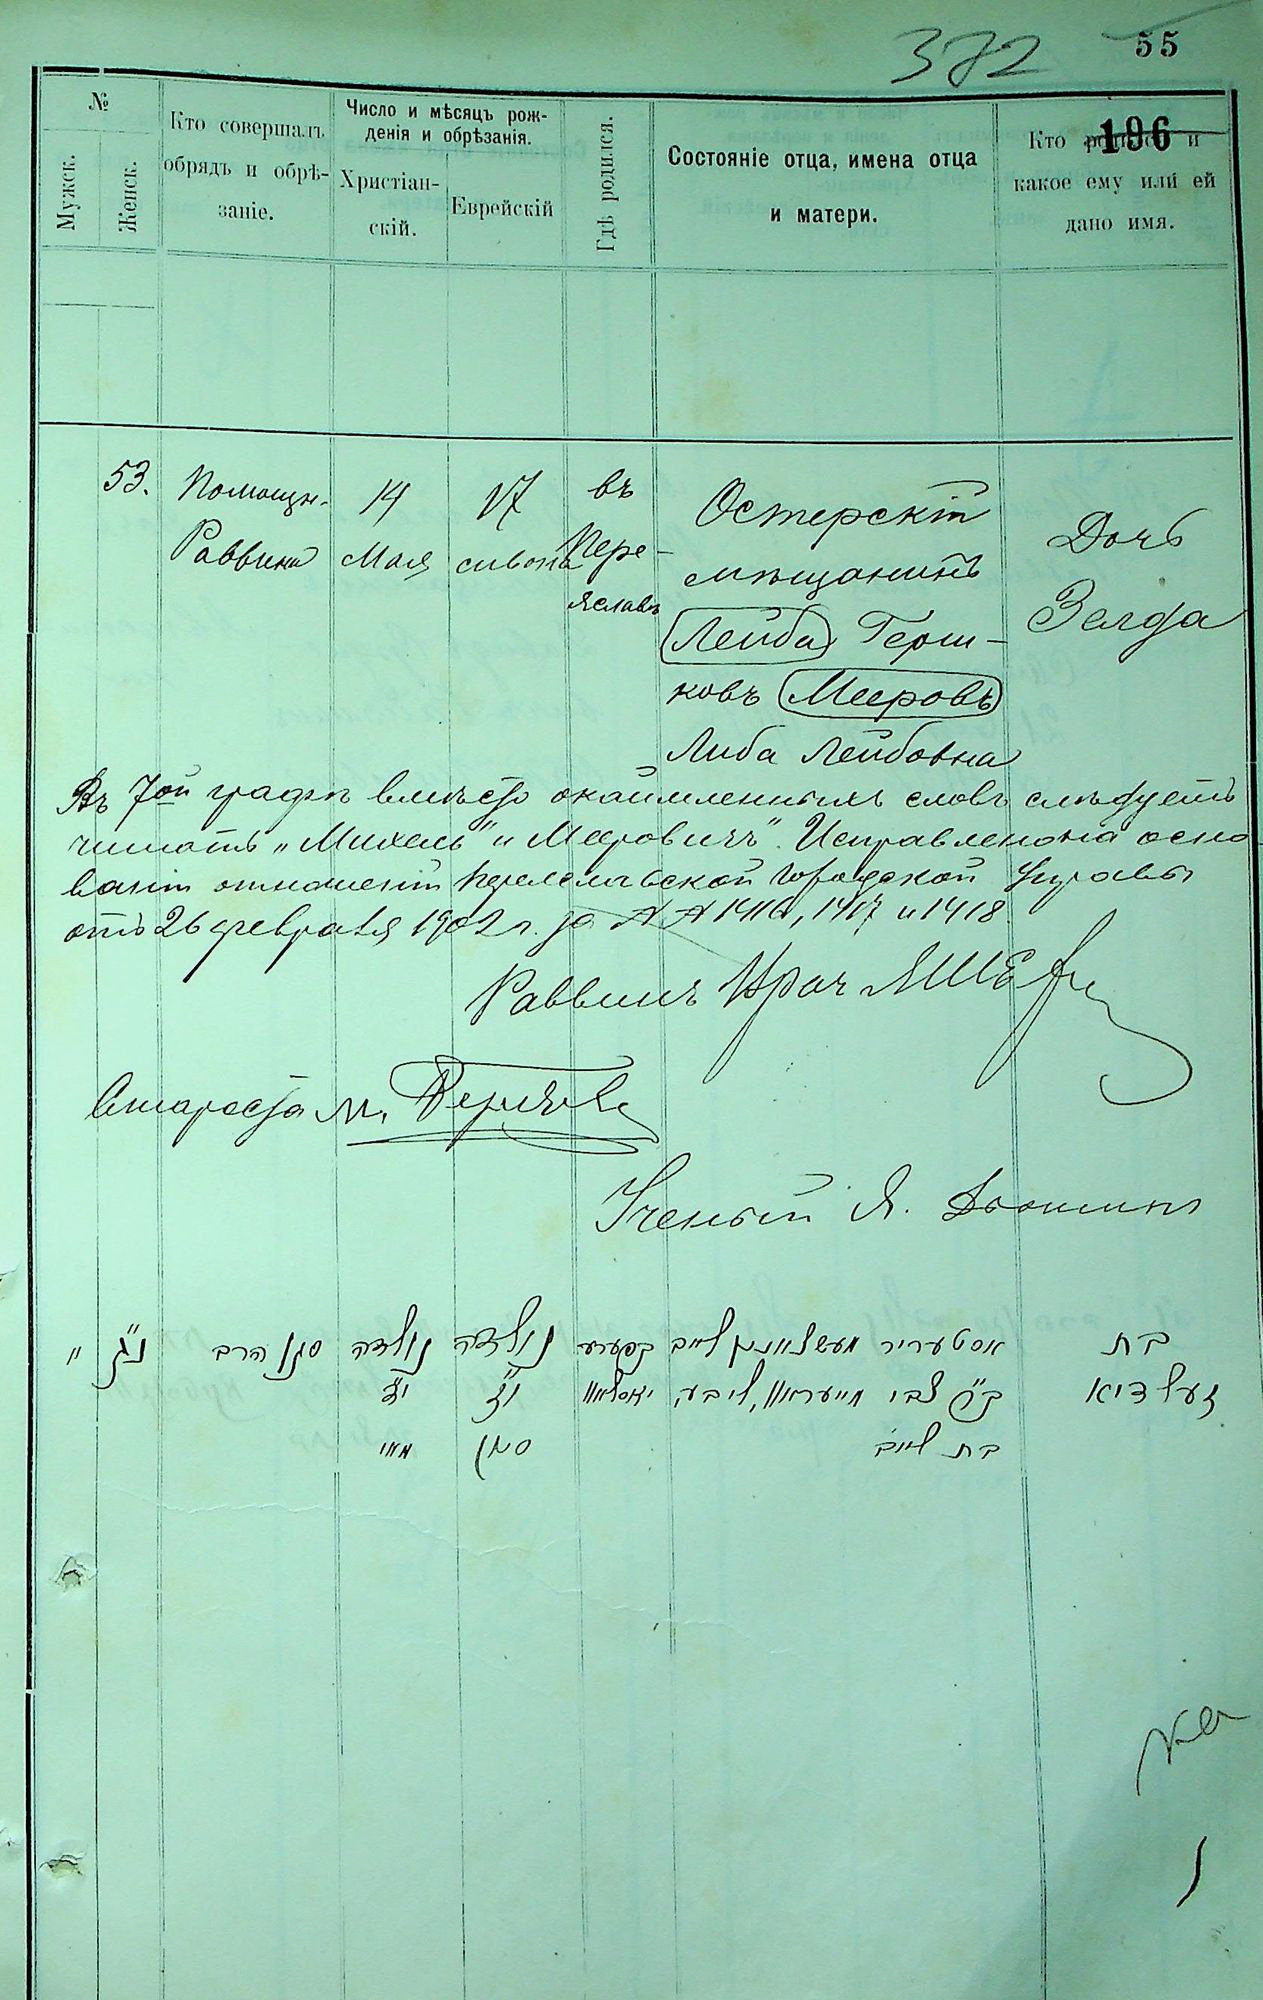 372 55
196
№
Мужск.
Женск.
Кто совершалъ
обрядъ и обрѣ-
заніе.
Число и мѣсяцъ рож-
денія и обрѣзанія.
Христіан-
скій.
Еврейскій
Гдѣ родился.
Состояніе отца, имена отца
и матери.
Кто родился и
какое ему или ей
дано имя.
53.
Помощн.
Раввина
14
Мая
17
сивона
въ
Пере-
яславѣ
Остерскій
мѣщанинъ
Лейба Герш-
ковъ Мееровъ
Либа Лейбовна
Дочь
Зелда
Въ 7ой графѣ вмѣсто окаймленныхъ словъ слѣдуетъ
читать „Михель" и Мееровичъ". Исправлено на осно
ваніи отношеній Переяславской Городской Управы
отъ 26 февраля 1902 г. за №№ 1416, 1417 и 1418
Раввинъ Врач
Староста М.
Ученый Я.
" נ"ג סגן הרב נולדה נולדה בפערע אסטעריר בת
י"ד י"ז יאסלאוו זעלדיא
מאי סיון בת לייב